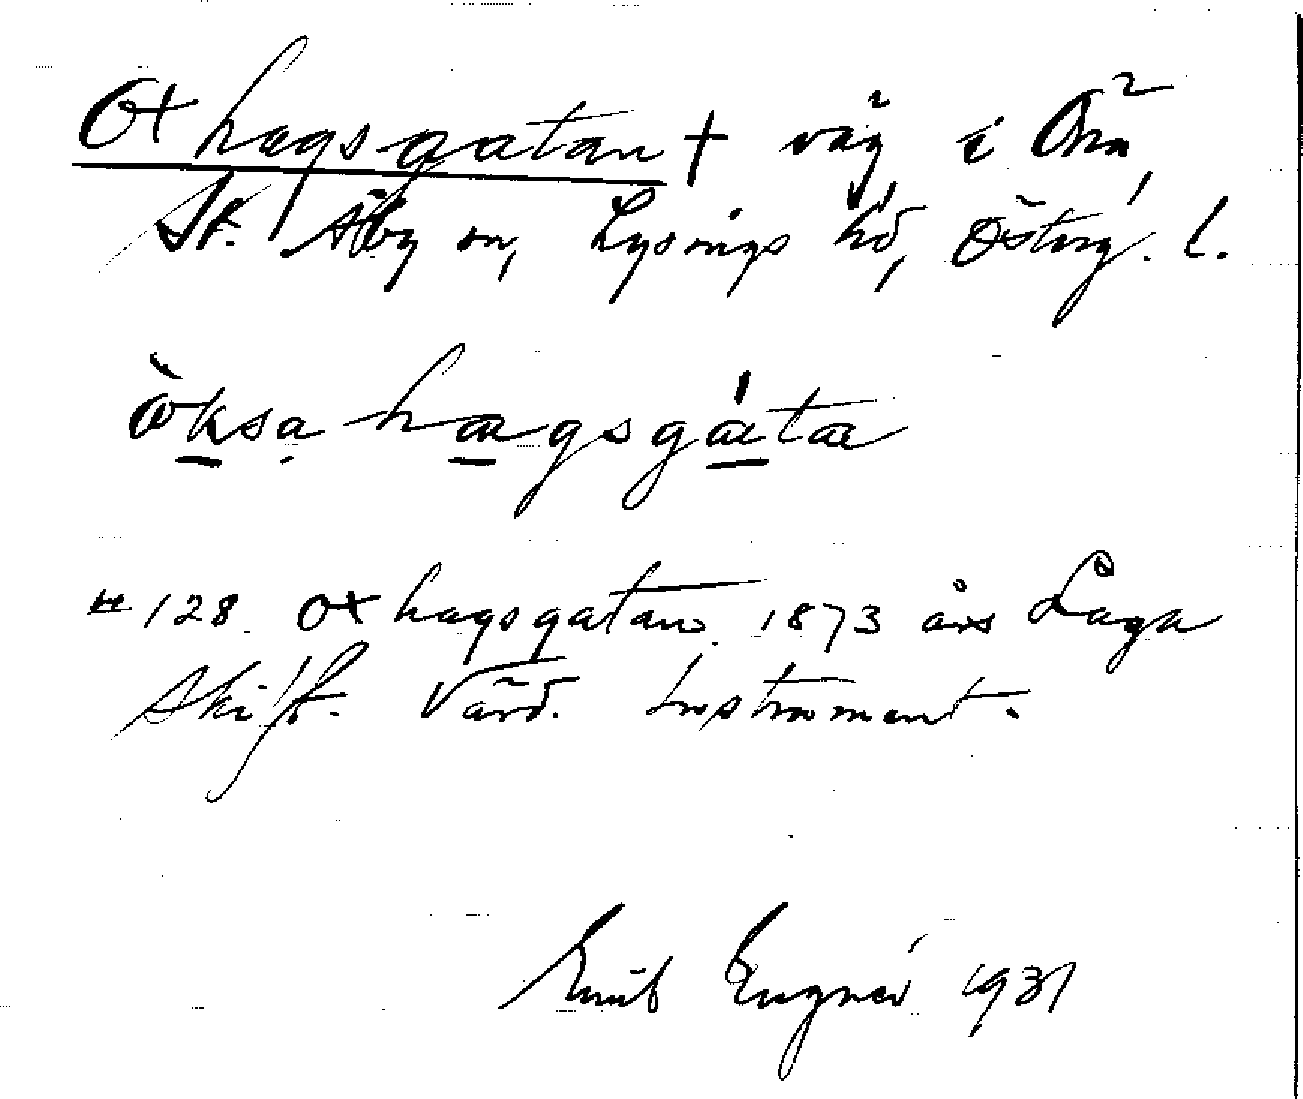 Oxhagsgatan + väg i Öna,
St. Åby sn, Lysings hd, Österg. l.
òksa hagsgáta
# 128. Oxhagsgatan. 1873 års Laga
Skift. Värd. Instrument.
Emil Engner 1931